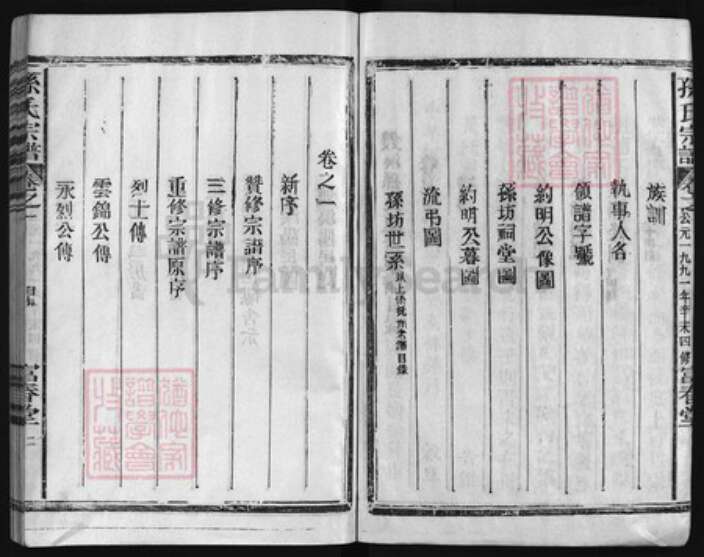 孫氏宗譜 卷之一 公元一九九一年辛未四修 富春堂
族訓
執事人名
領譜字號
約明公像圖
孫坊祠堂圖
約明公墓圖
流弔圖
孫坊世系 以上係統宗老譜目錄
卷之一
新序
贊修宗譜序
三修宗譜序
重修宗譜原序
烈士傳
雲錦公傳
永烈公傳
孫氏宗譜 卷之一 目錄 富春堂 二
FamilySearch